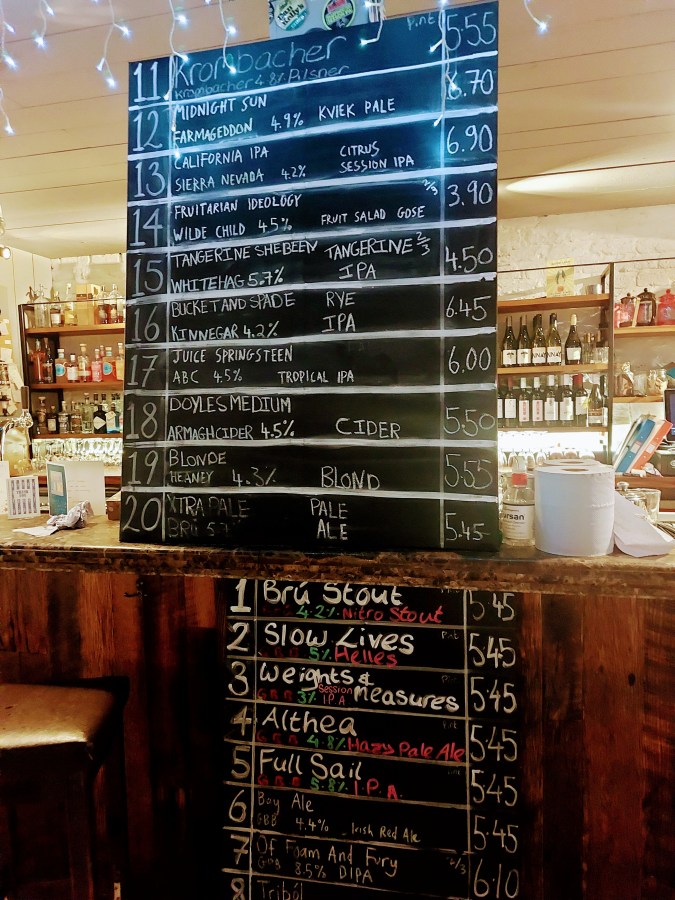 11 Krombacher Pint 5.55
Krombacher 4.8% Pilsner
12 MIDNIGHT SUN 6.70
FARMAGEDDON 4.9% KVIEK PALE
13 CALIFORNIA IPA CITRUS 6.90
SIERRA NEVADA 4.2% SESSION IPA
14 FRUITARIAN IDEOLOGY 2/3 3.90
WILDE CHILD 45% FRUIT SALAD GOSE
15 TANGERINE SHEBEEN TANGERINE 2/3 4.50
WHITEHAG 5.7% IPA
16 BUCKET AND SPADE RYE 6.45
KINNEGAR 4.2% IPA
17 JUICE SPRINGSTEEN 6.00
ABC 45% TROPICAL IPA
18 DOYLES MEDIUM 5.50
ARMAGHCIDER 4.5% CIDER
19 BLONDE 5.55
HEANEY 4.3% BLOND
20 XTRA PALE PALE 5.45
BRÚ ALE
1 Brú Stout Pint 5.45
4.2% Nitro Stout
2 Slow Lives Pint 5.45
5% Helles
3 Weights & Measures 5.45
GBB 3% Session IPA
4 Althea Pint 5.45
GBB 4.8% Hazy Pale Ale
5 Full Sail 5.45
GBB 5.8% I.P.A.
6 Bay Ale 5.45
GBB 4.4% Irish Red Ale
7 Of Foam And Fury 2/3 6.10
GBB 8.5% DIPA
8 Triból